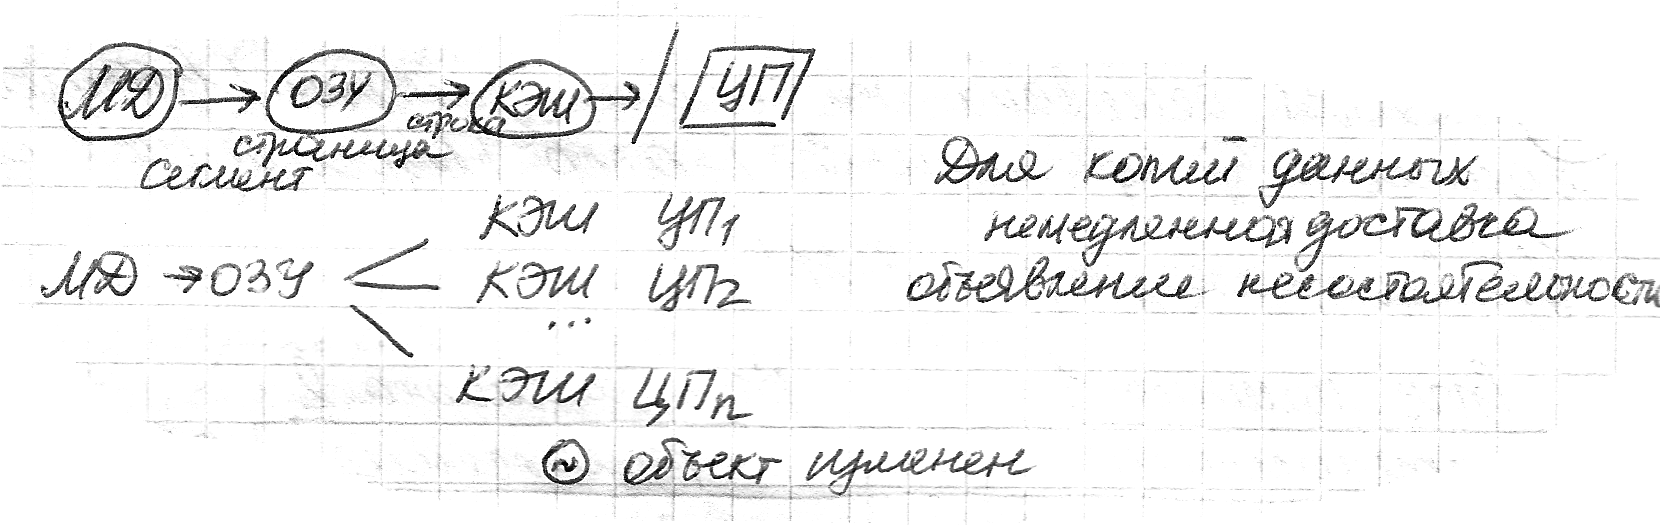 МД → ОЗУ → КЭШ → / ЦП
строка
страница
сегмент
Для копий данных
немедленная доставка
объявление несостоятельности
КЭШ ЦП1
МД → ОЗУ КЭШ ЦП2
...
КЭШ ЦПn
~ объект изменен